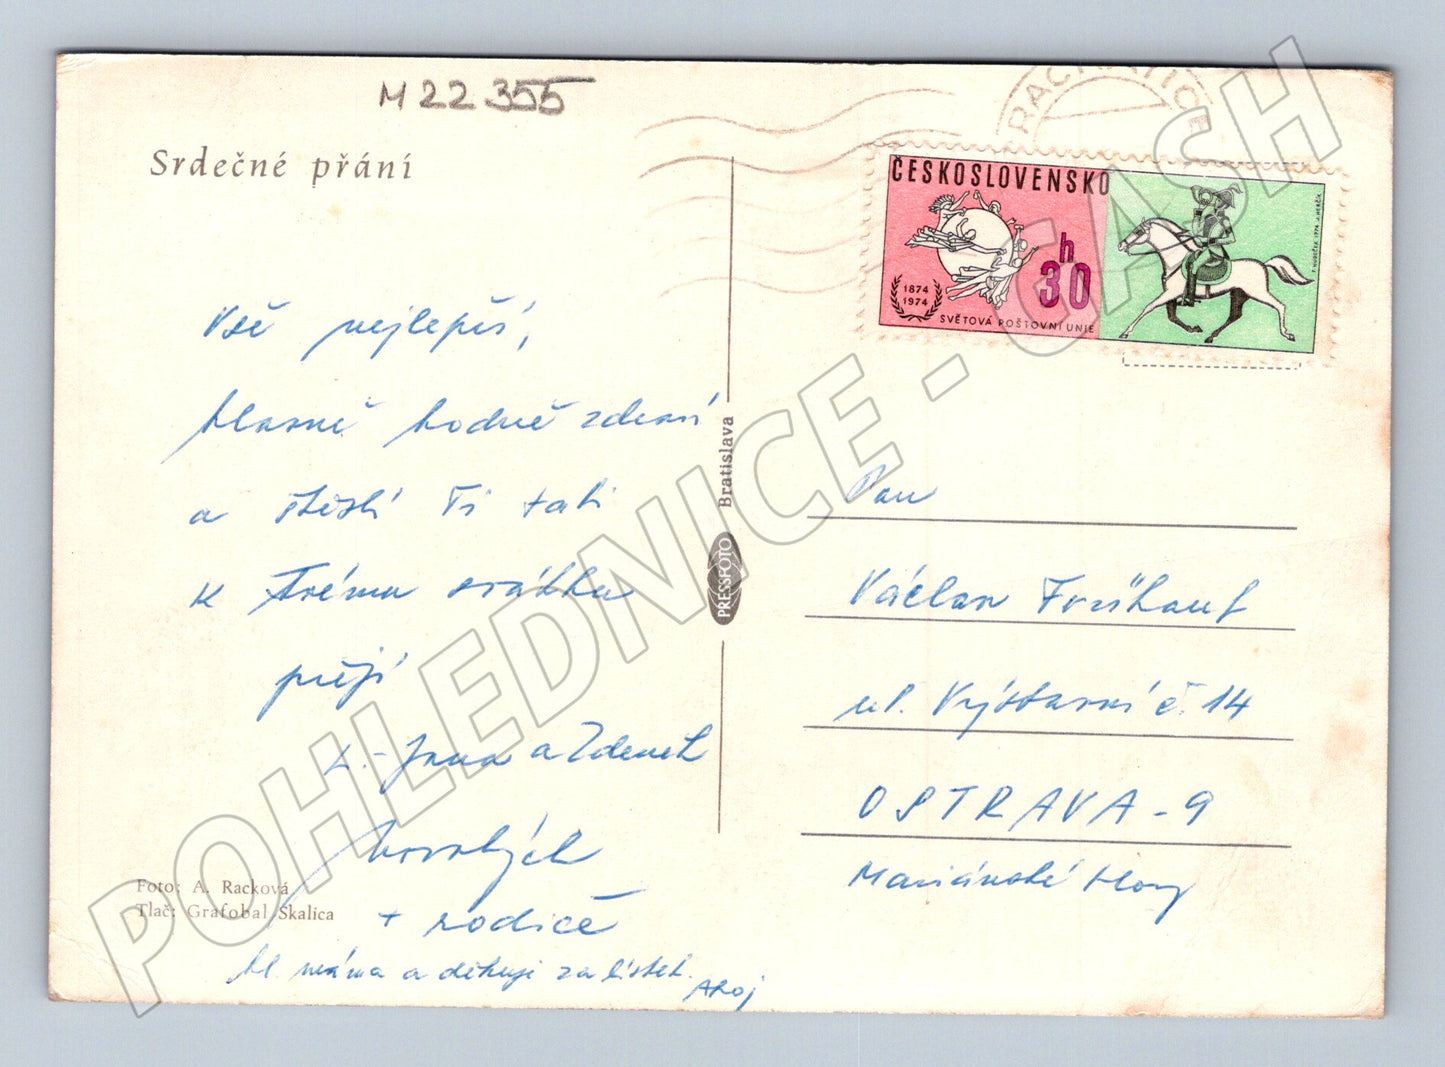 M 22 355
Srdečné přání
Vše nejlepší,
hlavně hodně zdraví
a štěstí Ti taťi
k Tvému svátku
přejí
Jana a Zdeněk
+ rodiče
máma a děkuji za lístek.
Ahoj
Foto: A. Racková
Tlač: Grafobal Skalica
PRESSFOTO Bratislava
ČESKOSLOVENSKO
30 h
1874
1974
SVĚTOVÁ POŠTOVNÍ UNIE
Pan
Václav
ul. Výstavní č. 14
OSTRAVA - 9
Mariánské Hory
POHLEDNICE - CASH